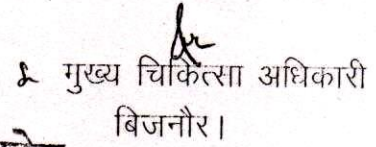 मुख्य चिकित्सा अधिकारी
बिजनौर।